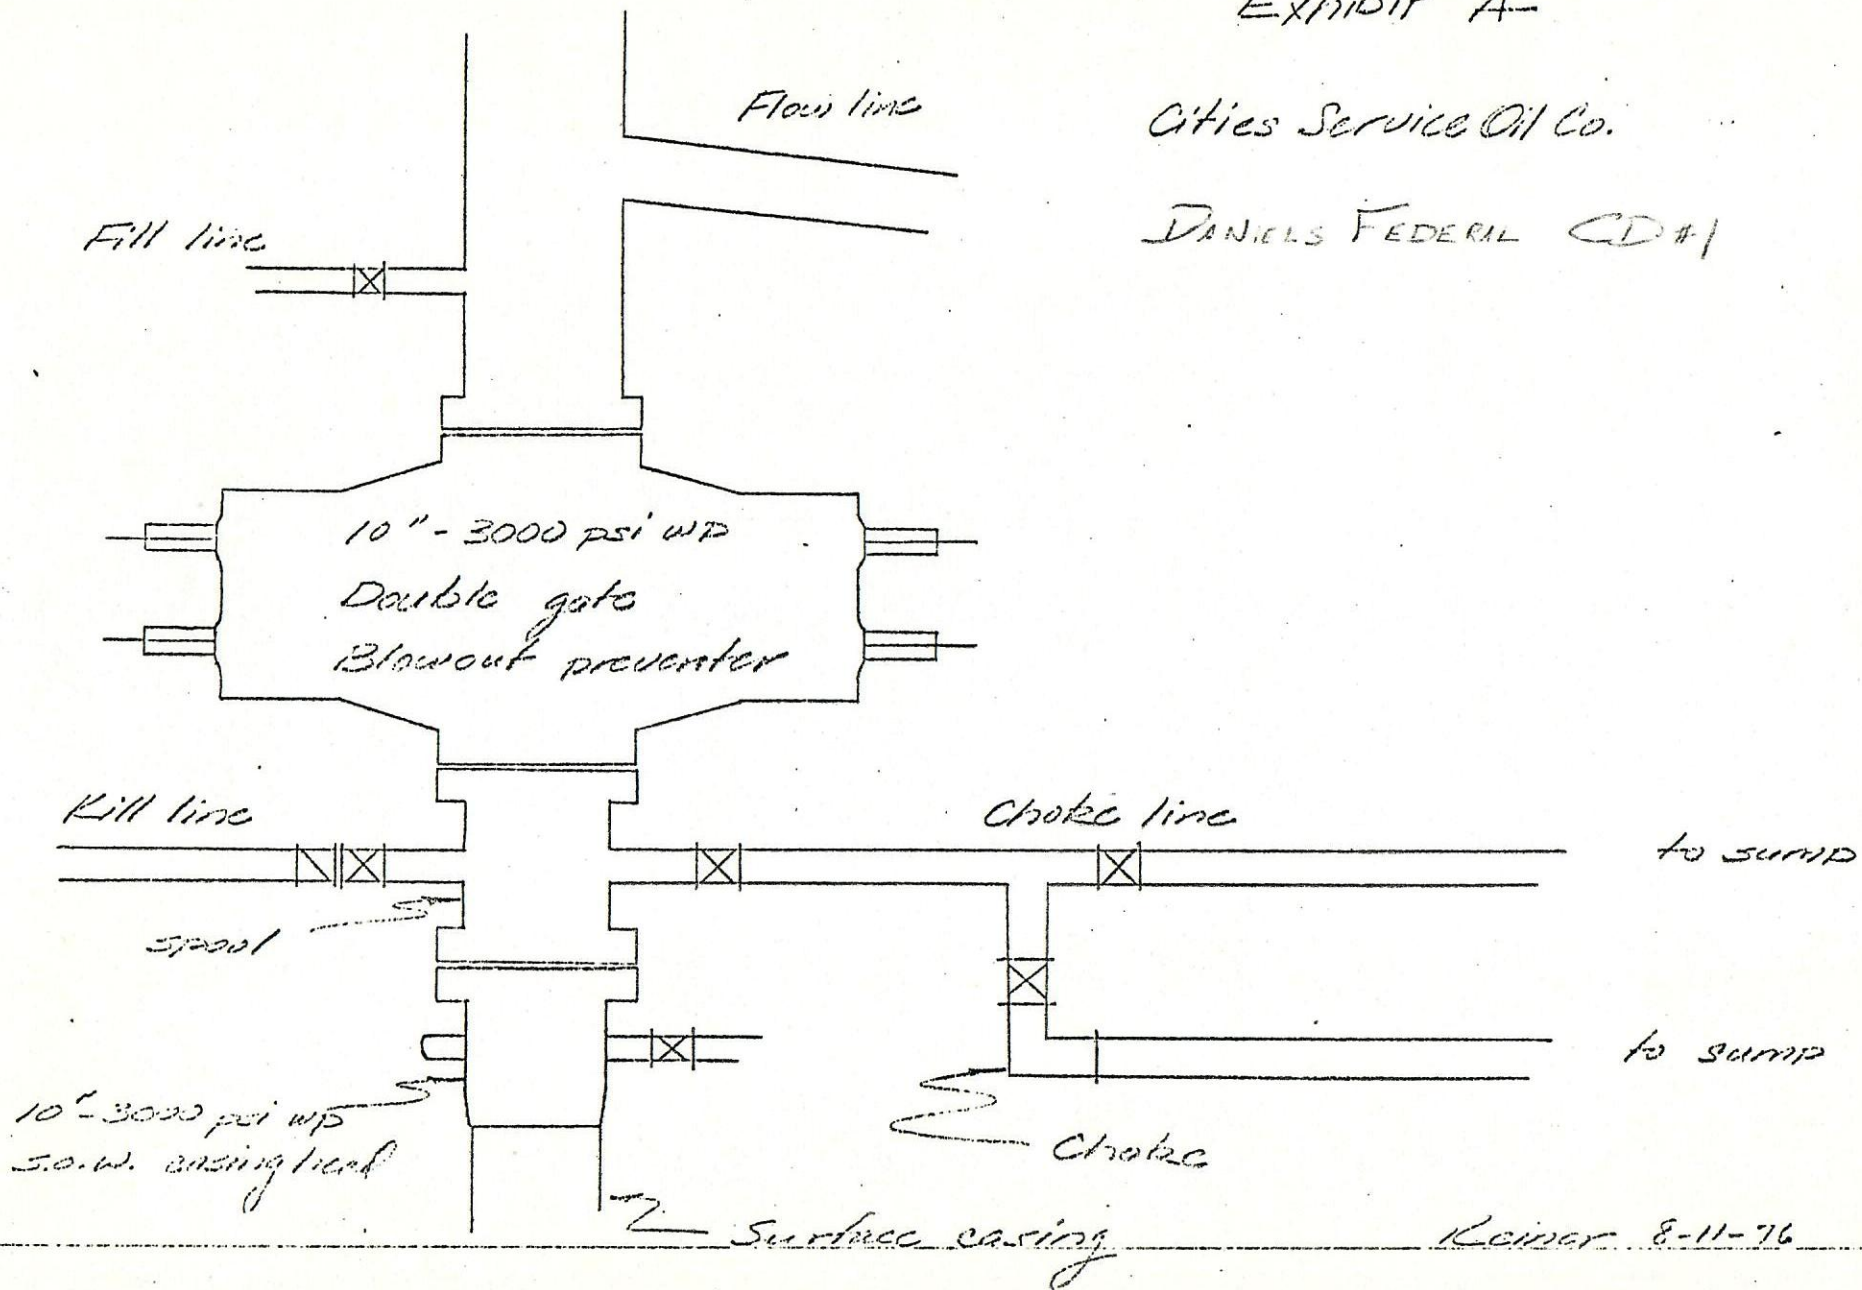 Exhibit A
Cities Service Oil Co.
DANIELS FEDERAL CD #1
Flow line
Fill line
10" - 3000 psi WP
Double gate
Blowout preventer
Kill line
Choke line
to sump
spool
to sump
10"-3000 psi WP
s.o.w. casing head
Choke
Surface casing
8-11-76